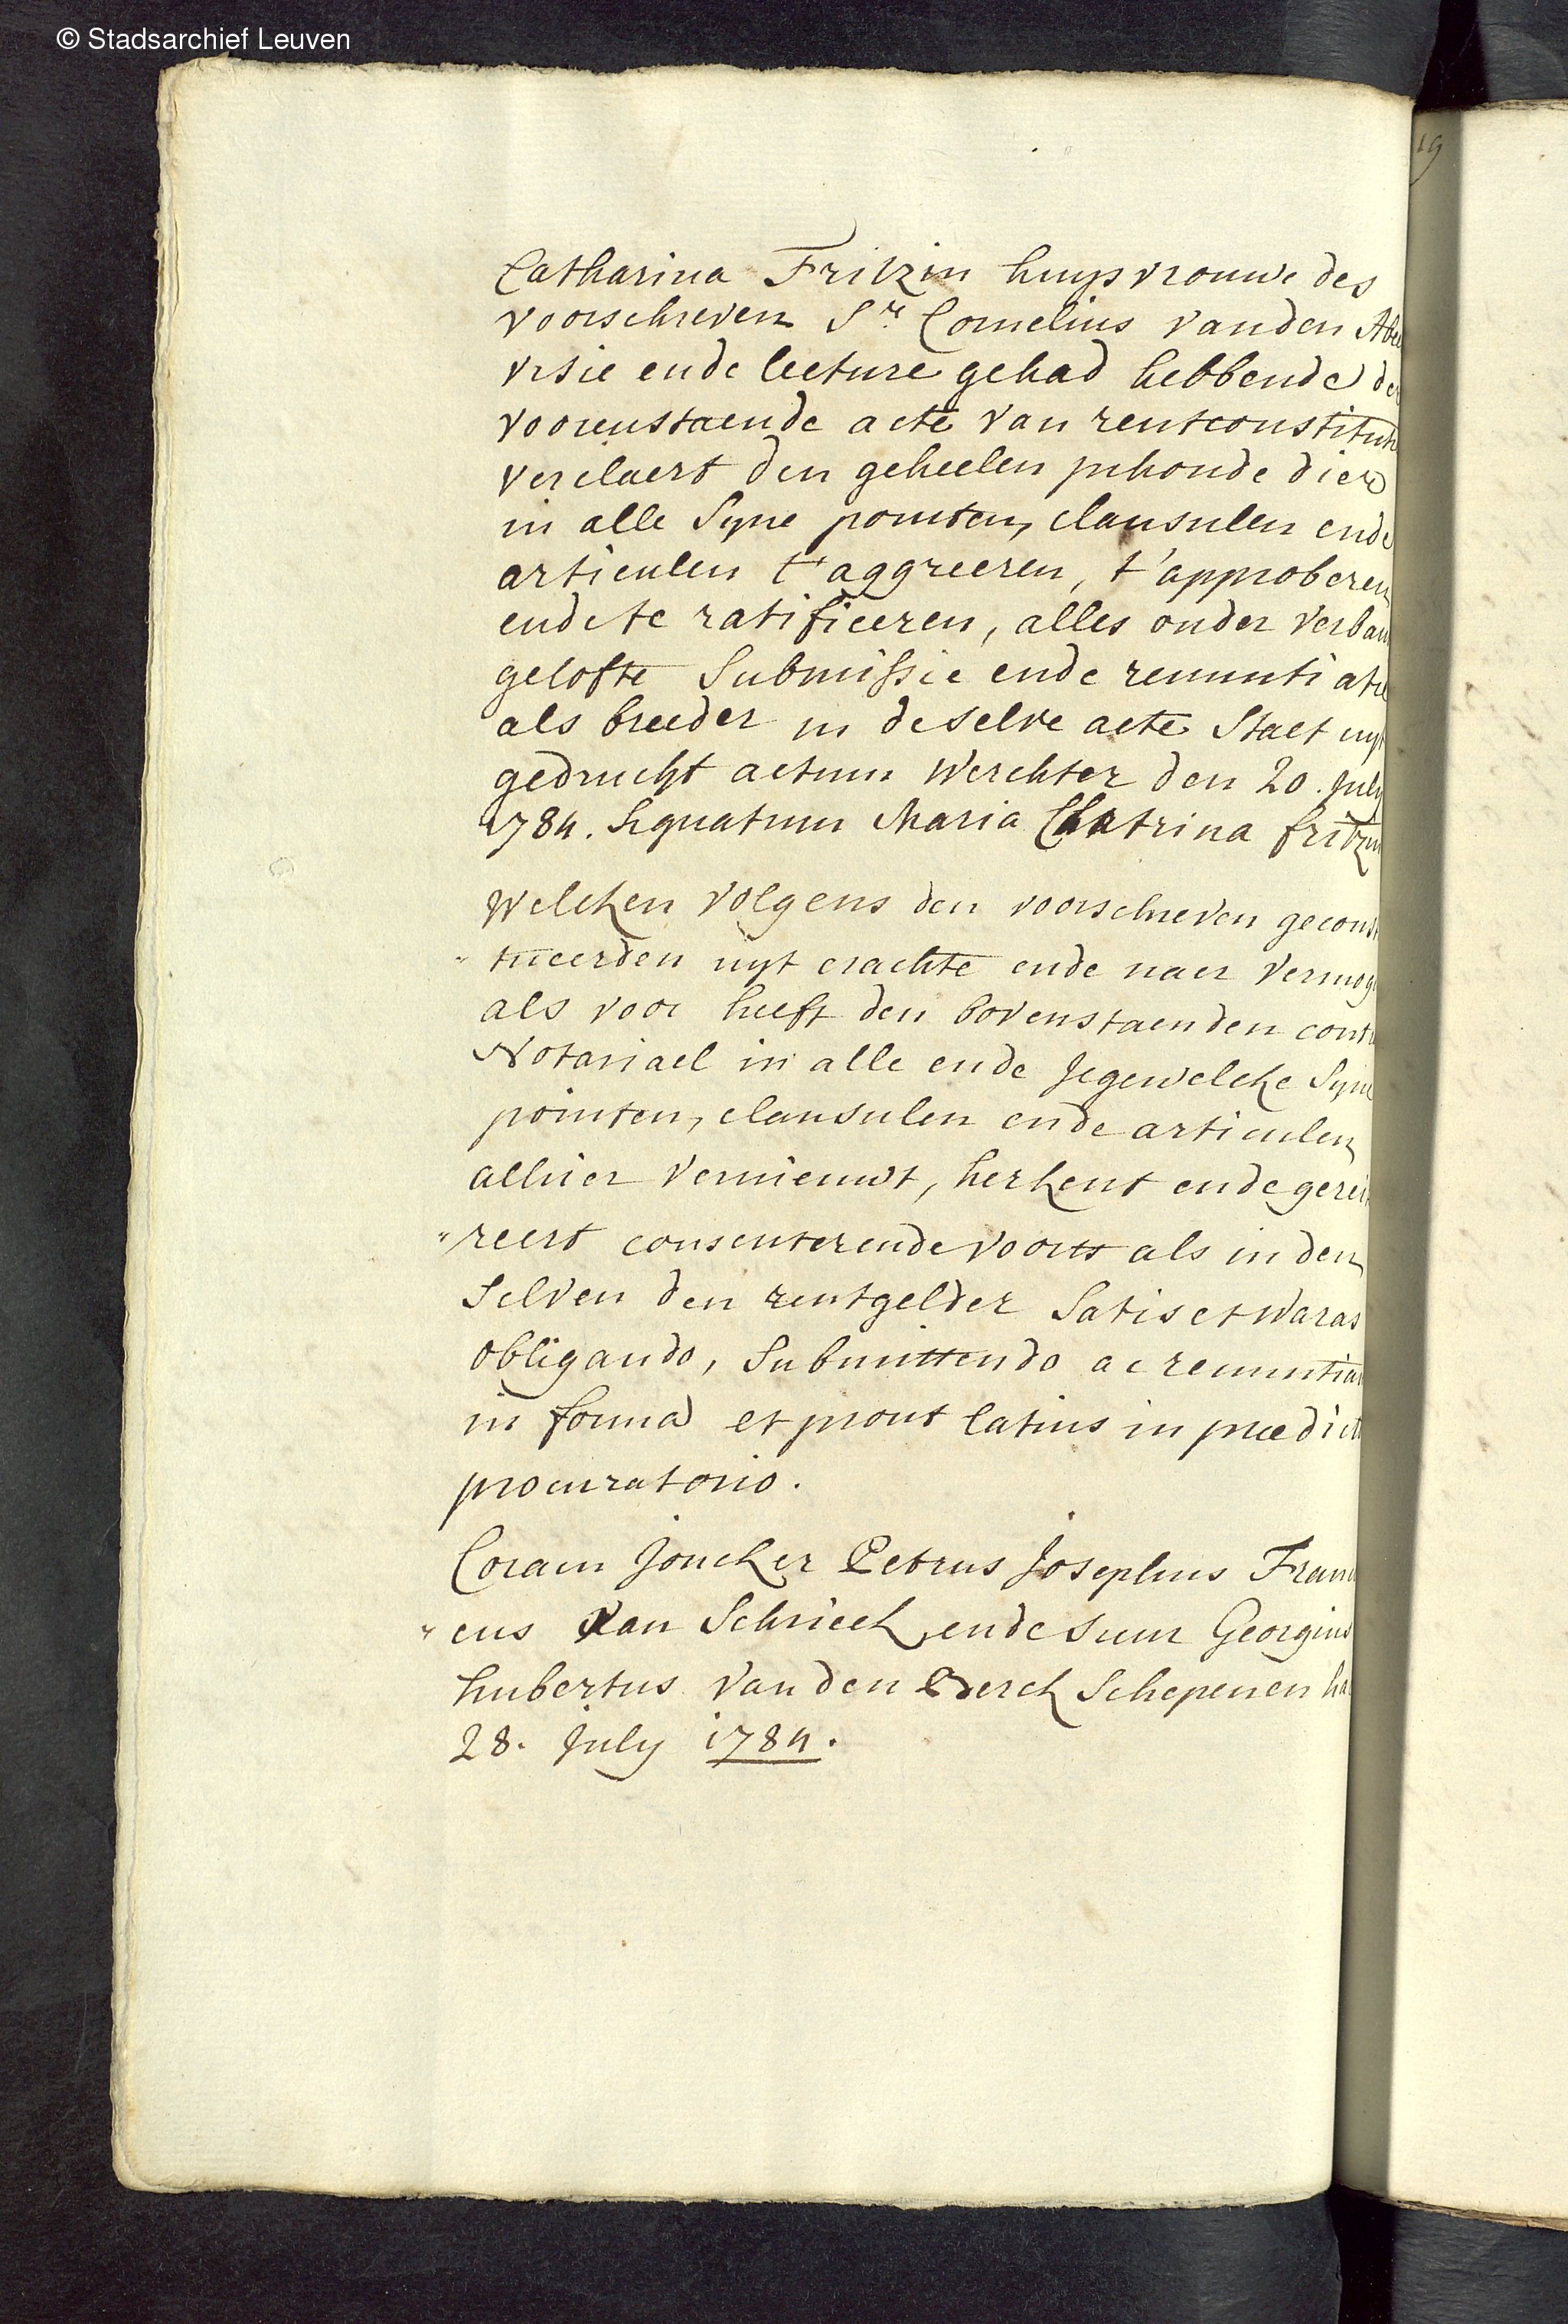 © Stadsarchief Leuven
19
Catharina Fritzin huysvrouwe des
voorschreven Sr. Cornelius vanden Abee
visie ende lecture gehad hebbende de
voorenstaende acte van rentconstitut
verclaert den geheelen inhoude diere
in alle syne pointen, clausulen ende
articulen t'aggreeren, t'approberen
ende te ratificeren, alles onder verban
gelofte submissie ende renuntiatie
als breeder in deselve acte staet uyt
gedruckt actum Werchter den 20. july
1784. signatum Maria Chatrina fritzin
Welcken volgens den voorschreven geconsti
" tueerden uyt crachte ende naer vermoge
als voor heeft den bovenstaenden cont
Notariael in alle ende jegewelcke syne
pointen, clausulen ende articulen
alhier vernieuwt, herkent ende gereit
" reert consenterende voorts als in den
selven den rentgelder satis et waras
obligando, submittendo ac renuntia
in forma et prout latius in prædict
procuratorio.
Coram joncker Petrus josephus Franc
" cus Van Schrieck ende sieur Georgius
hubertus vanden Berck schepenen ha
28. july 1784.